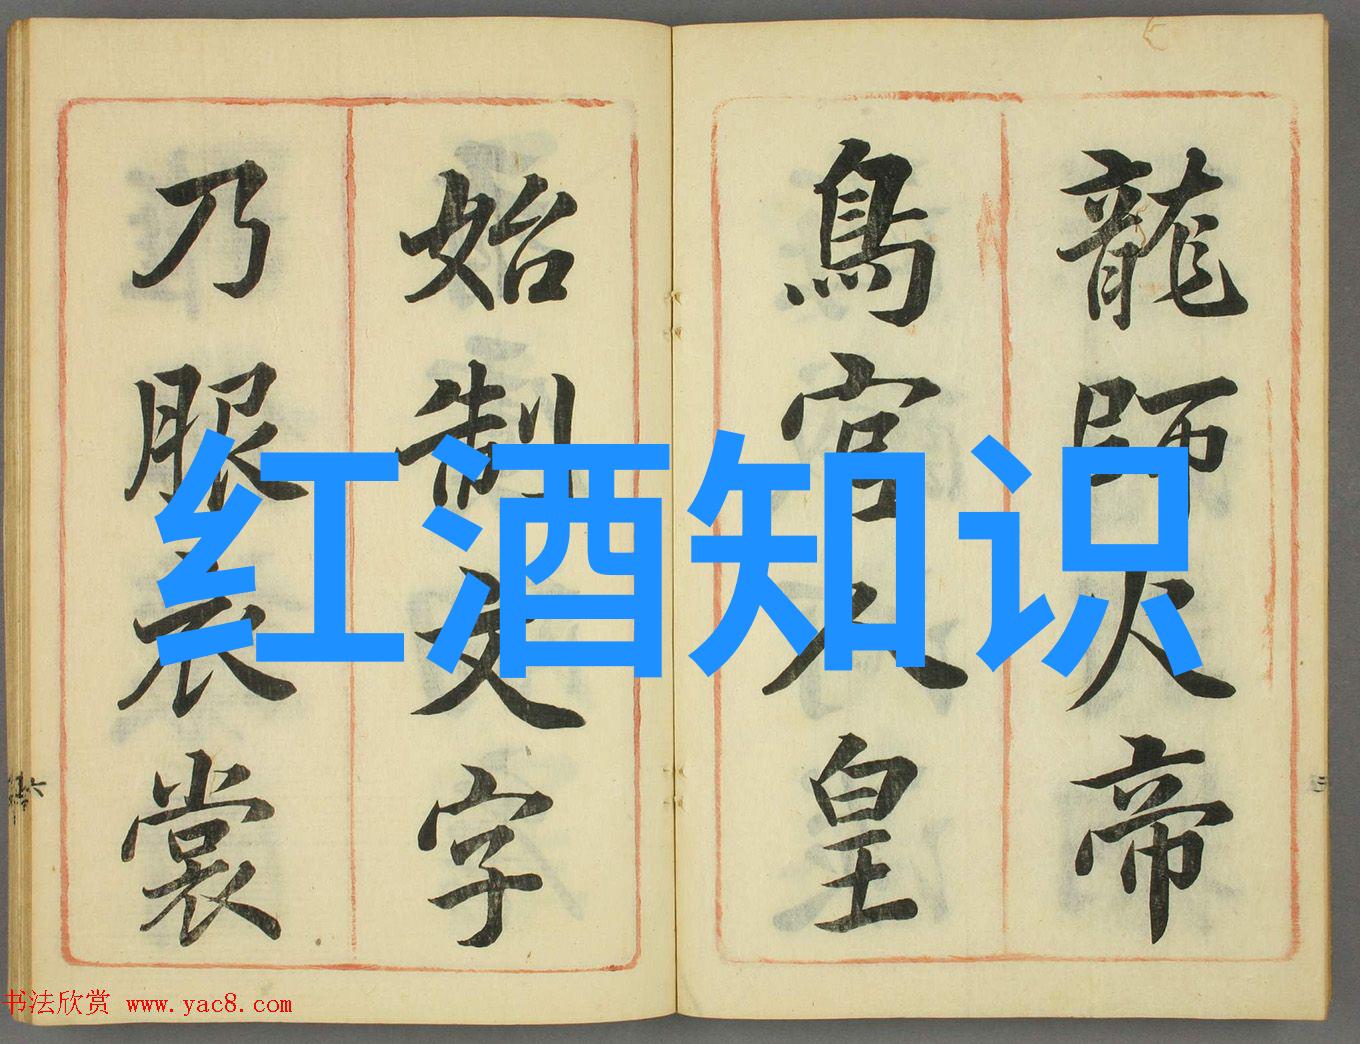 龍師火帝
鳥官人皇
始制文字
乃服衣裳
红酒知识
书法欣赏 www.yac8.com